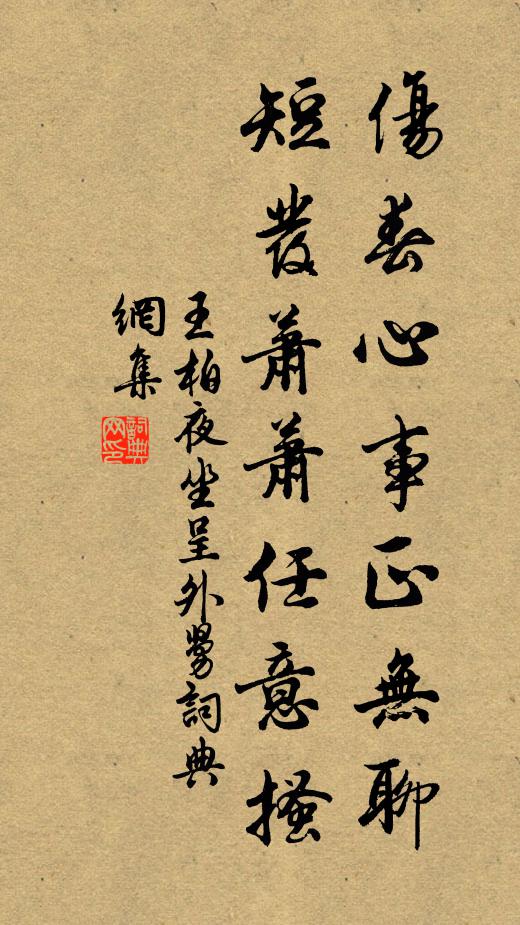 傷春心事正無聊
短發蕭蕭任意搔
王柏夜坐呈外舅詞典
網集
詞典網印